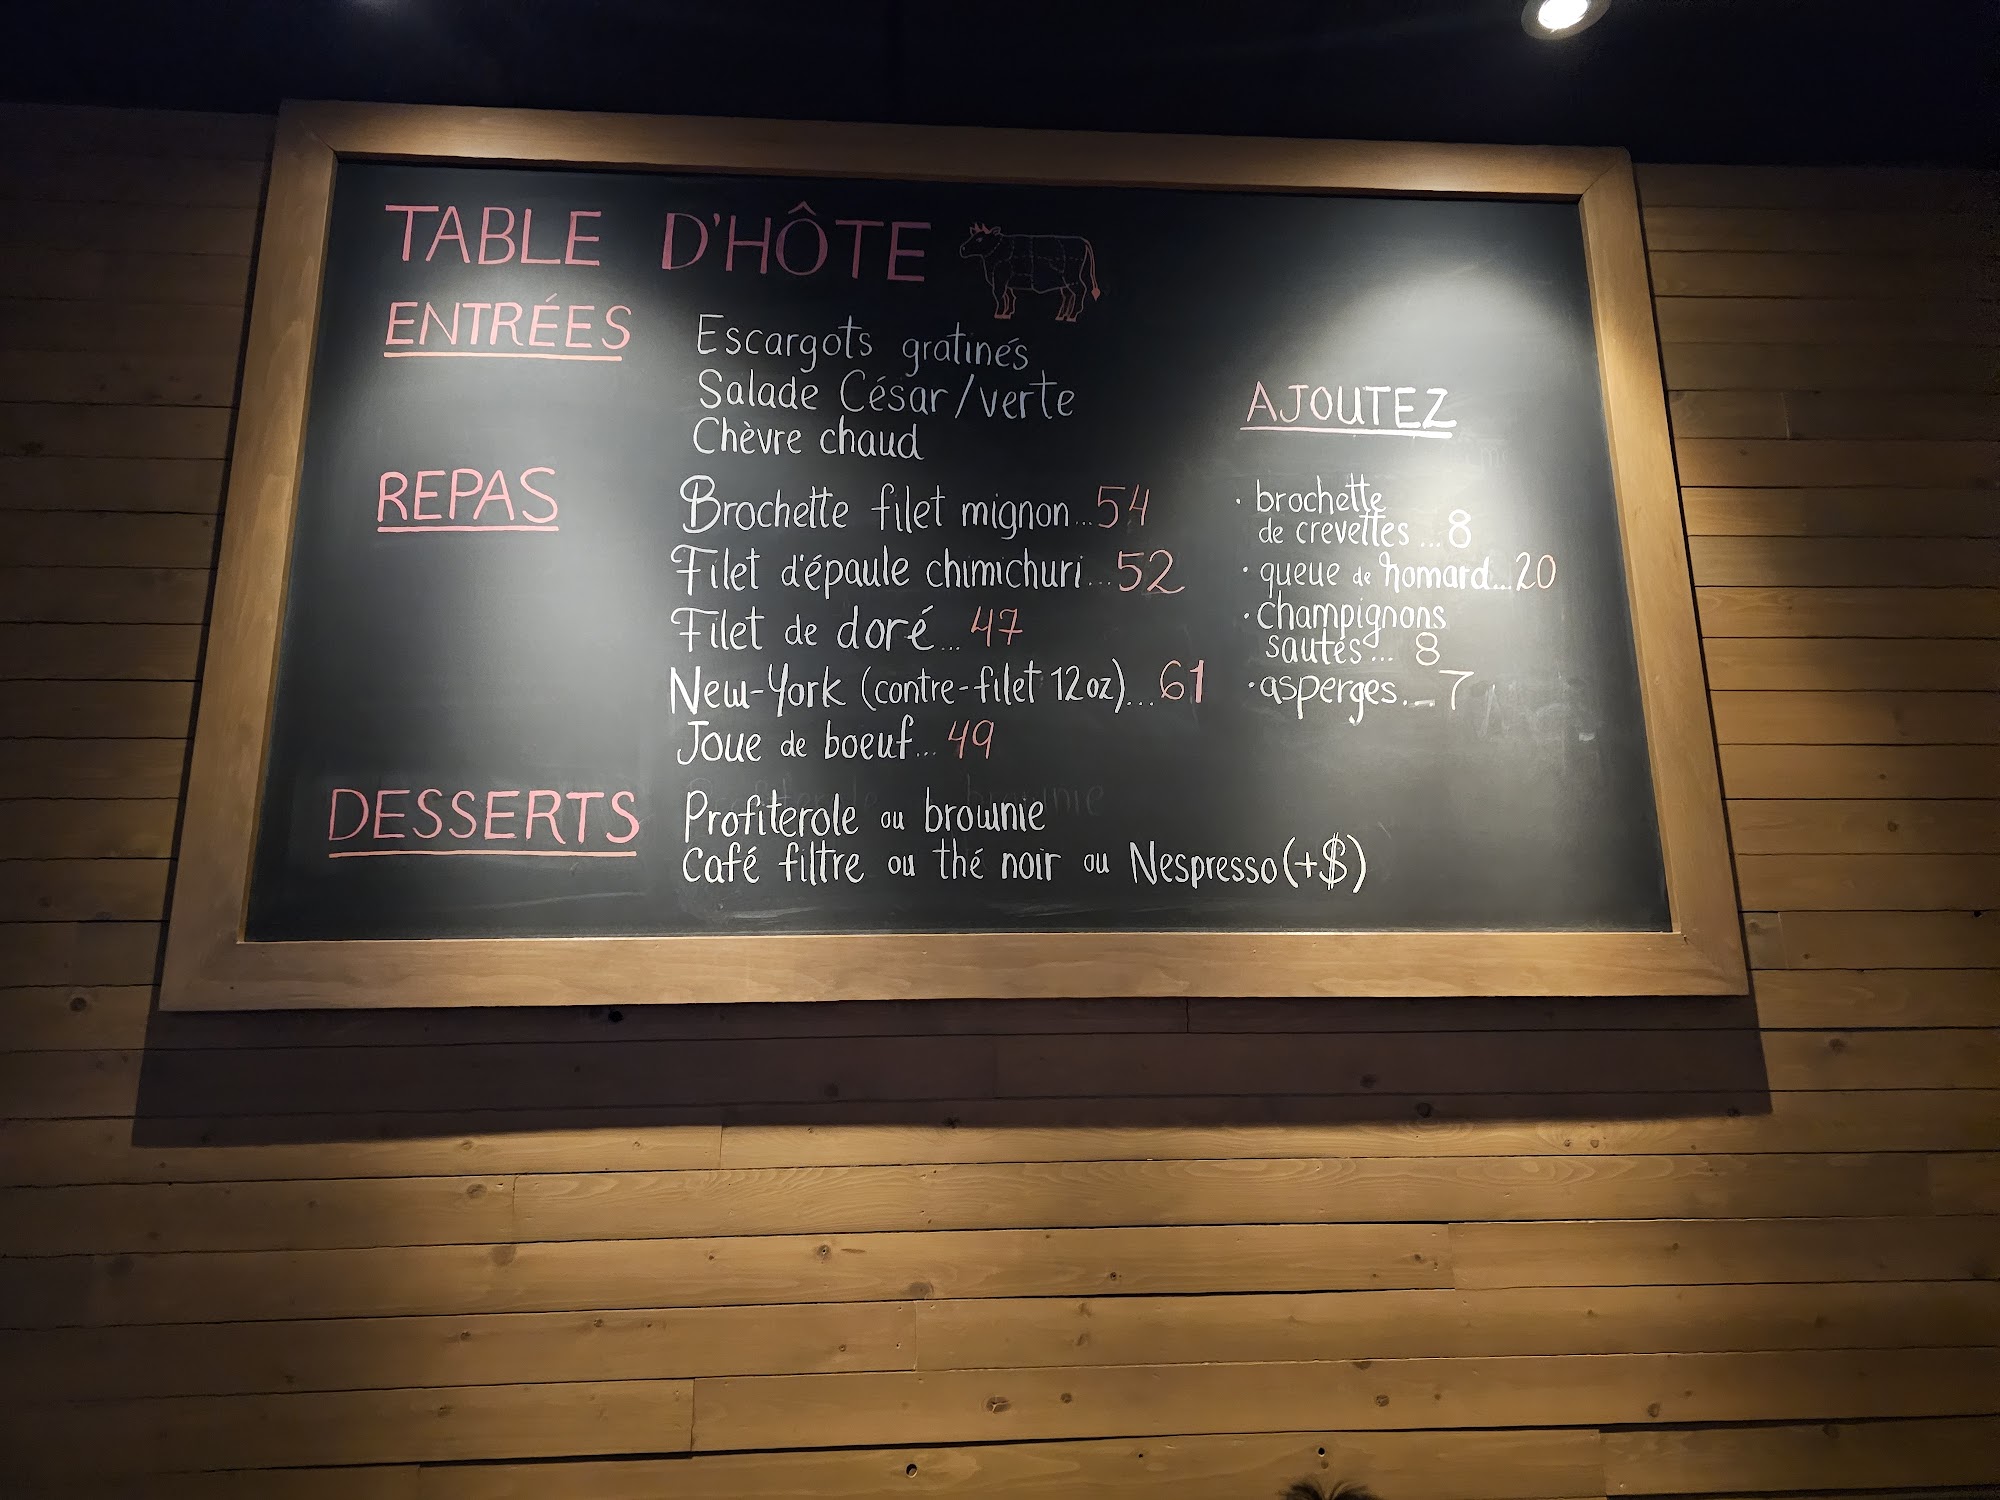 TABLE D'HÔTE
ENTRÉES
Escargots gratinés
Salade César/verte
Chèvre chaud
REPAS
Brochette filet mignon...54
Filet d'épaule chimichuri...52
Filet de doré...47
New-York (contre-filet 12oz)...61
Joue de boeuf...49
DESSERTS
Profiterole ou brownie
Café filtre ou thé noir ou Nespresso(+$)
AJOUTEZ
· brochette
de crevettes...8
· queue de homard...20
· champignons
sautés... 8
· asperges... 7